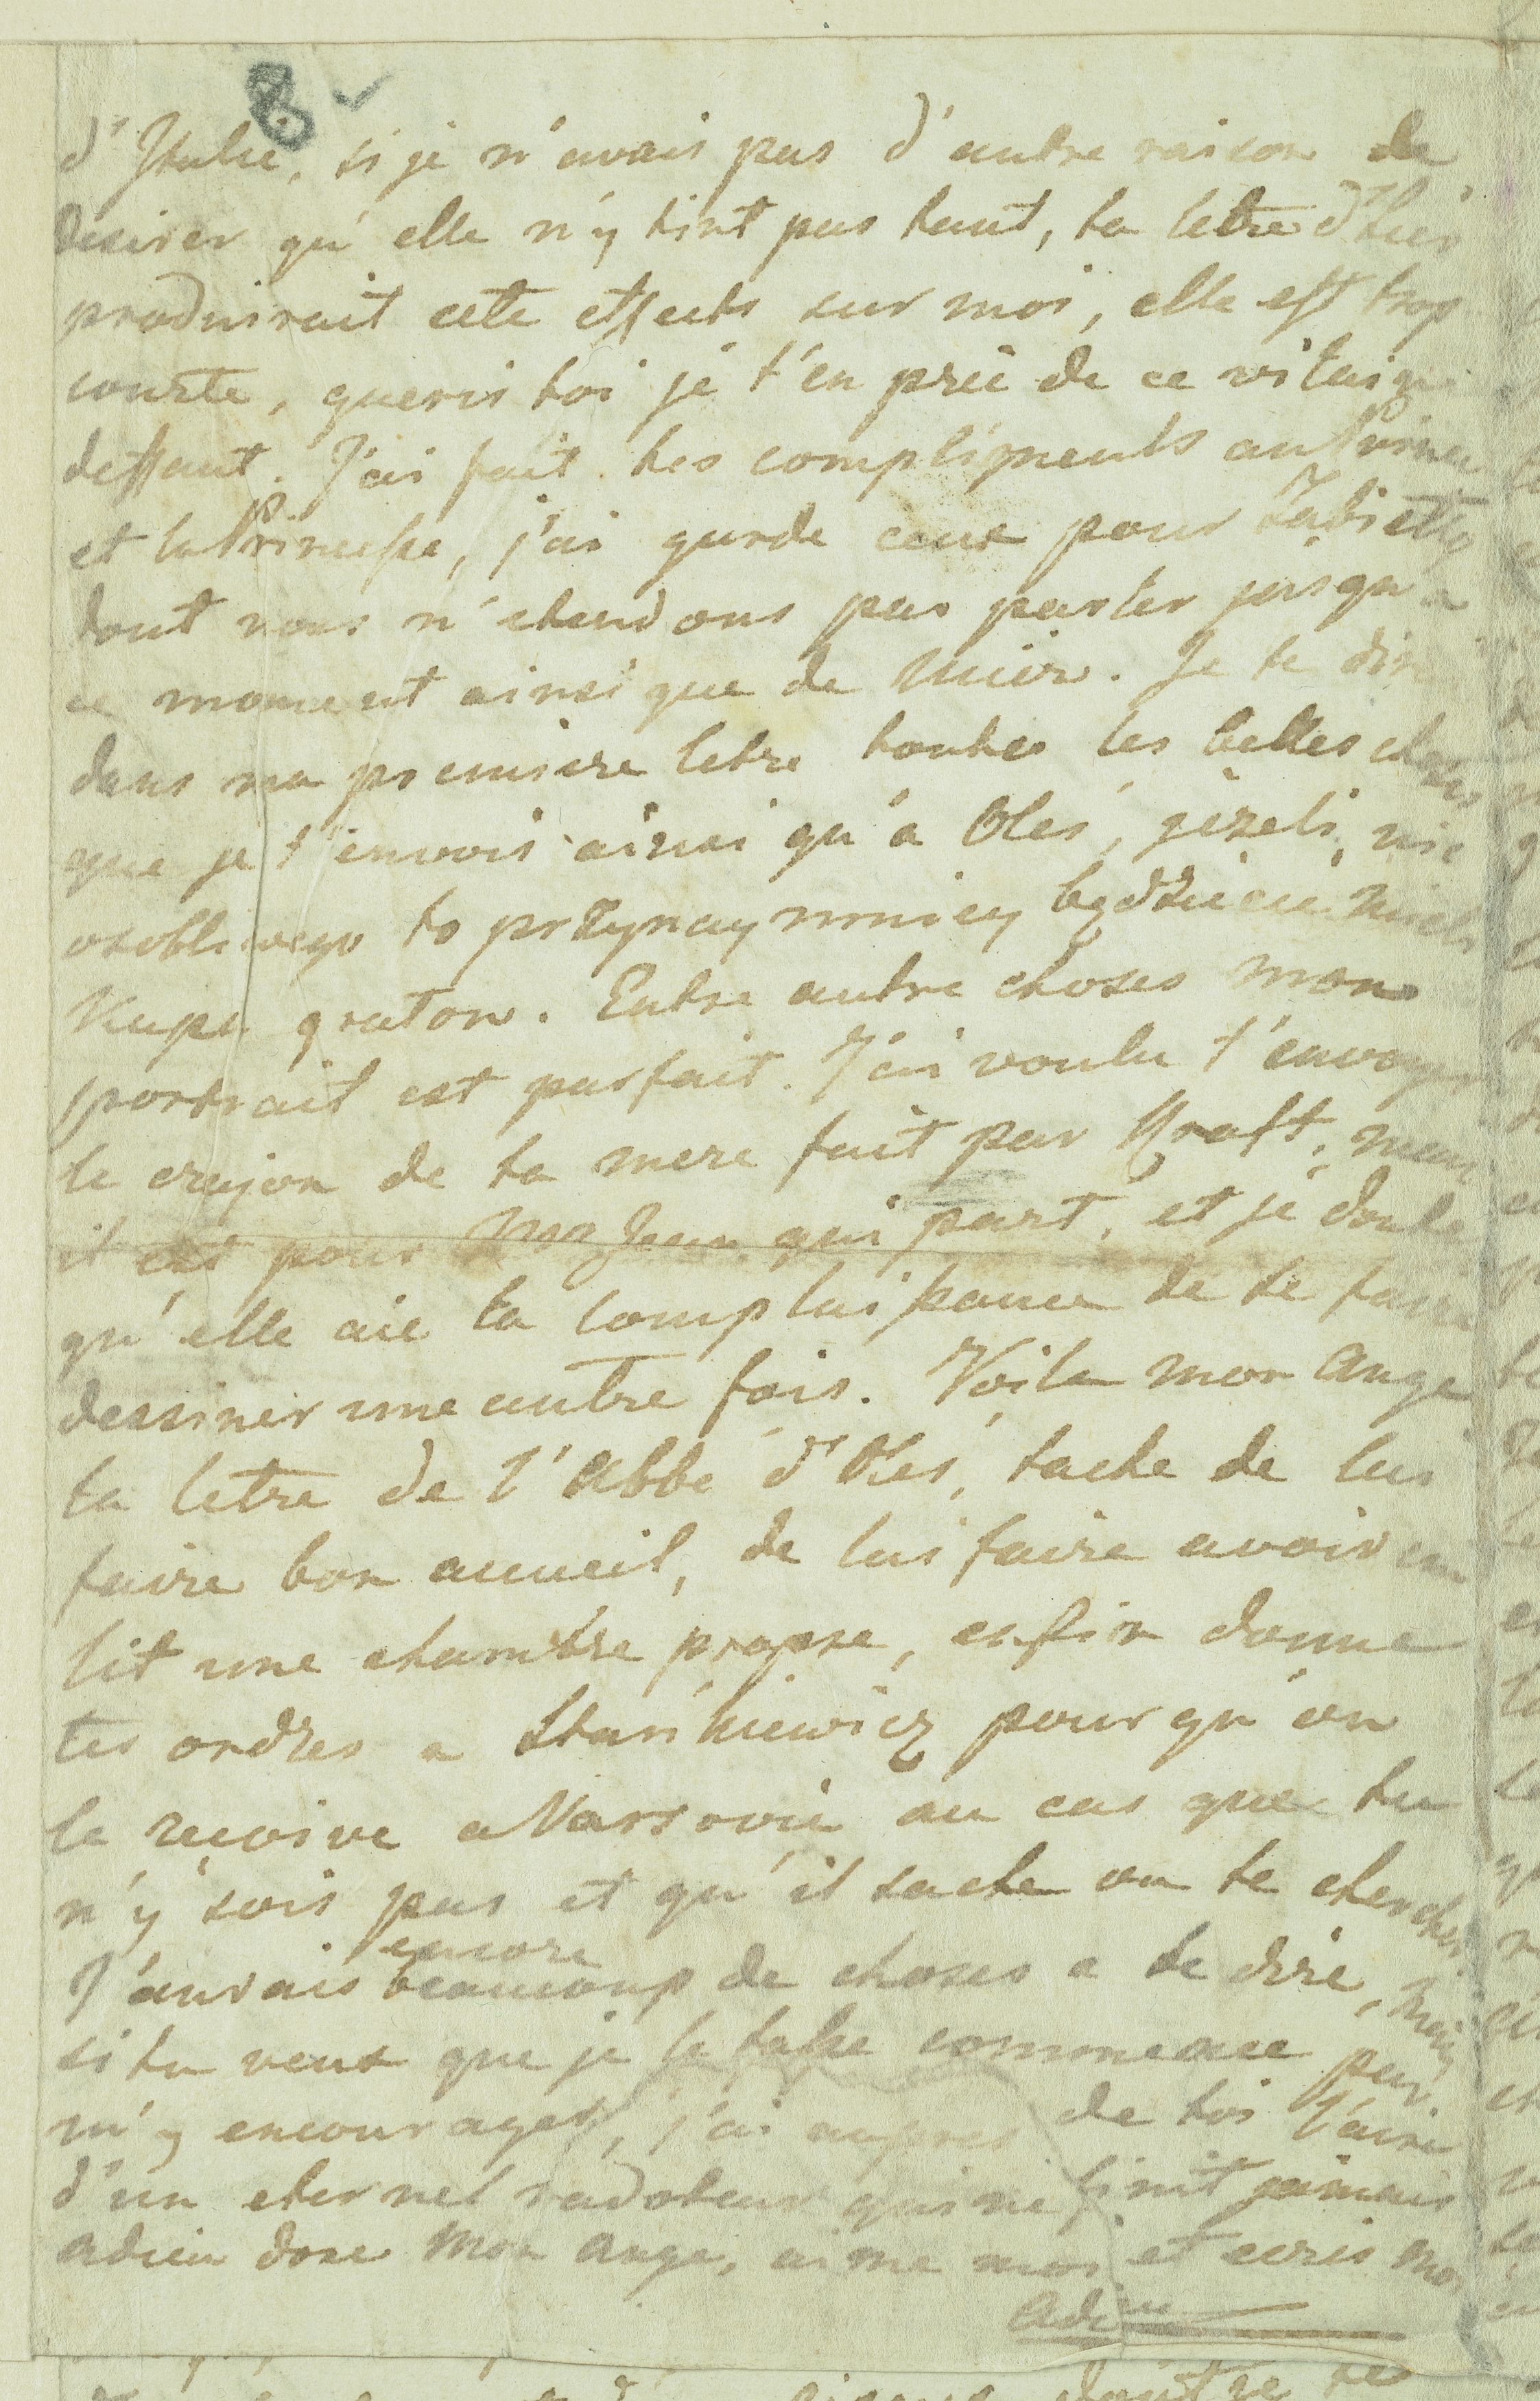 8
d'Italie, si je n'avais pas d'autre raison de
desirer qu'elle n'y tint pas tant, ta letre d'hier
produirait cete effects sur moi, elle est trop
courte, gueris toi je t'en prie de ce vilain
deffaut. J'ai fait tes compligments au Prince
et la Princesse, j'ai garde ceux pour
dont nous n'entendons pas parler jusqu'a
ce moment ainsi que de Mier. Je te dir
dans ma premiere letre toutes les belles choses
que je t'envois ainsi qu'a Oles, jezeli nic
osobliwego to przynaymniey będziecie mieli
Kupę gratow. Entre autre choses mon
portrait est parfait. J'ai voulu t'envoyer
le crajon de ta mere fait par Kraft, mais
il est pour Mr Jean qui part, et je doute
qu'elle aie la complaisance de se faire
dessiner une autre fois. Voila mon Ange
la letre de l'Abbé d'Oles, tache de lui
faire bon acueil, de lui faire avoir un
lit une chambre propre, enfin donne
tes ordres a Stankiewicz pour qu'on
le reçoive a Varsovie au cas que tu
n'y sois pas et qu'il sache ou te chercher
J'aurais encore beaucoup de choses a te dire, mais
si tu veux que je le fasse commence par
m'y encourager, j'ai aupres de toi l'air
d'un eternel radoteur qui ne finit jamais
adieu donc Mon Ange, aime moi et ecris moi
Adieu